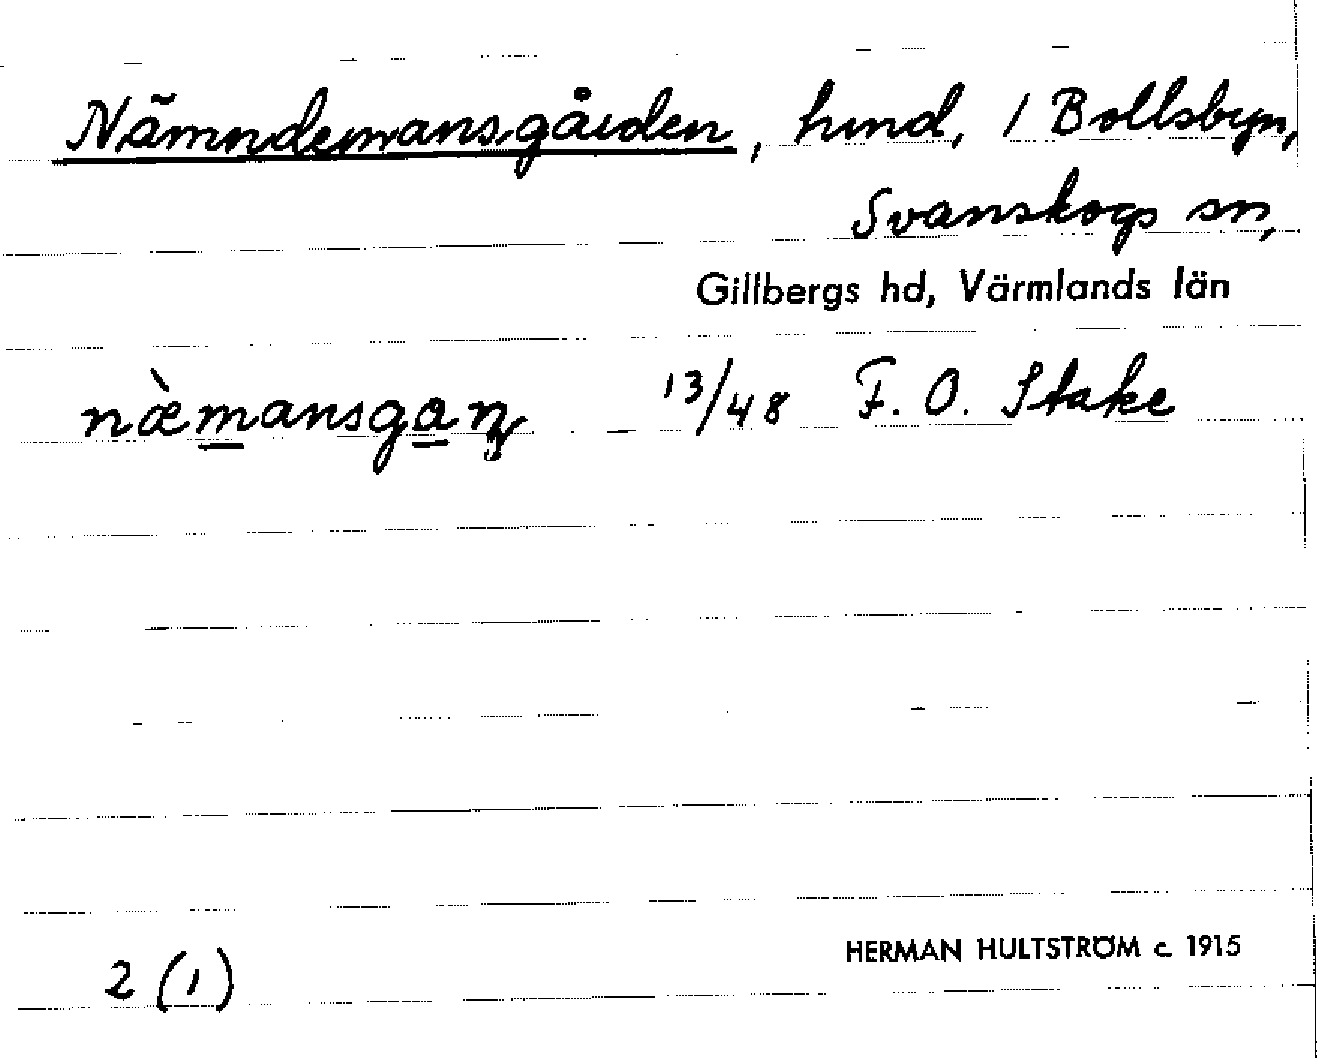 Nämndemansgården, hmd, 1 Bollsbyn,
Svanskogs sn,
Gillbergs hd, Värmlands län
næ̀mansgaɳ 13/48 F. O. Stake
2 (1)
HERMAN HULTSTRÖM c. 1915